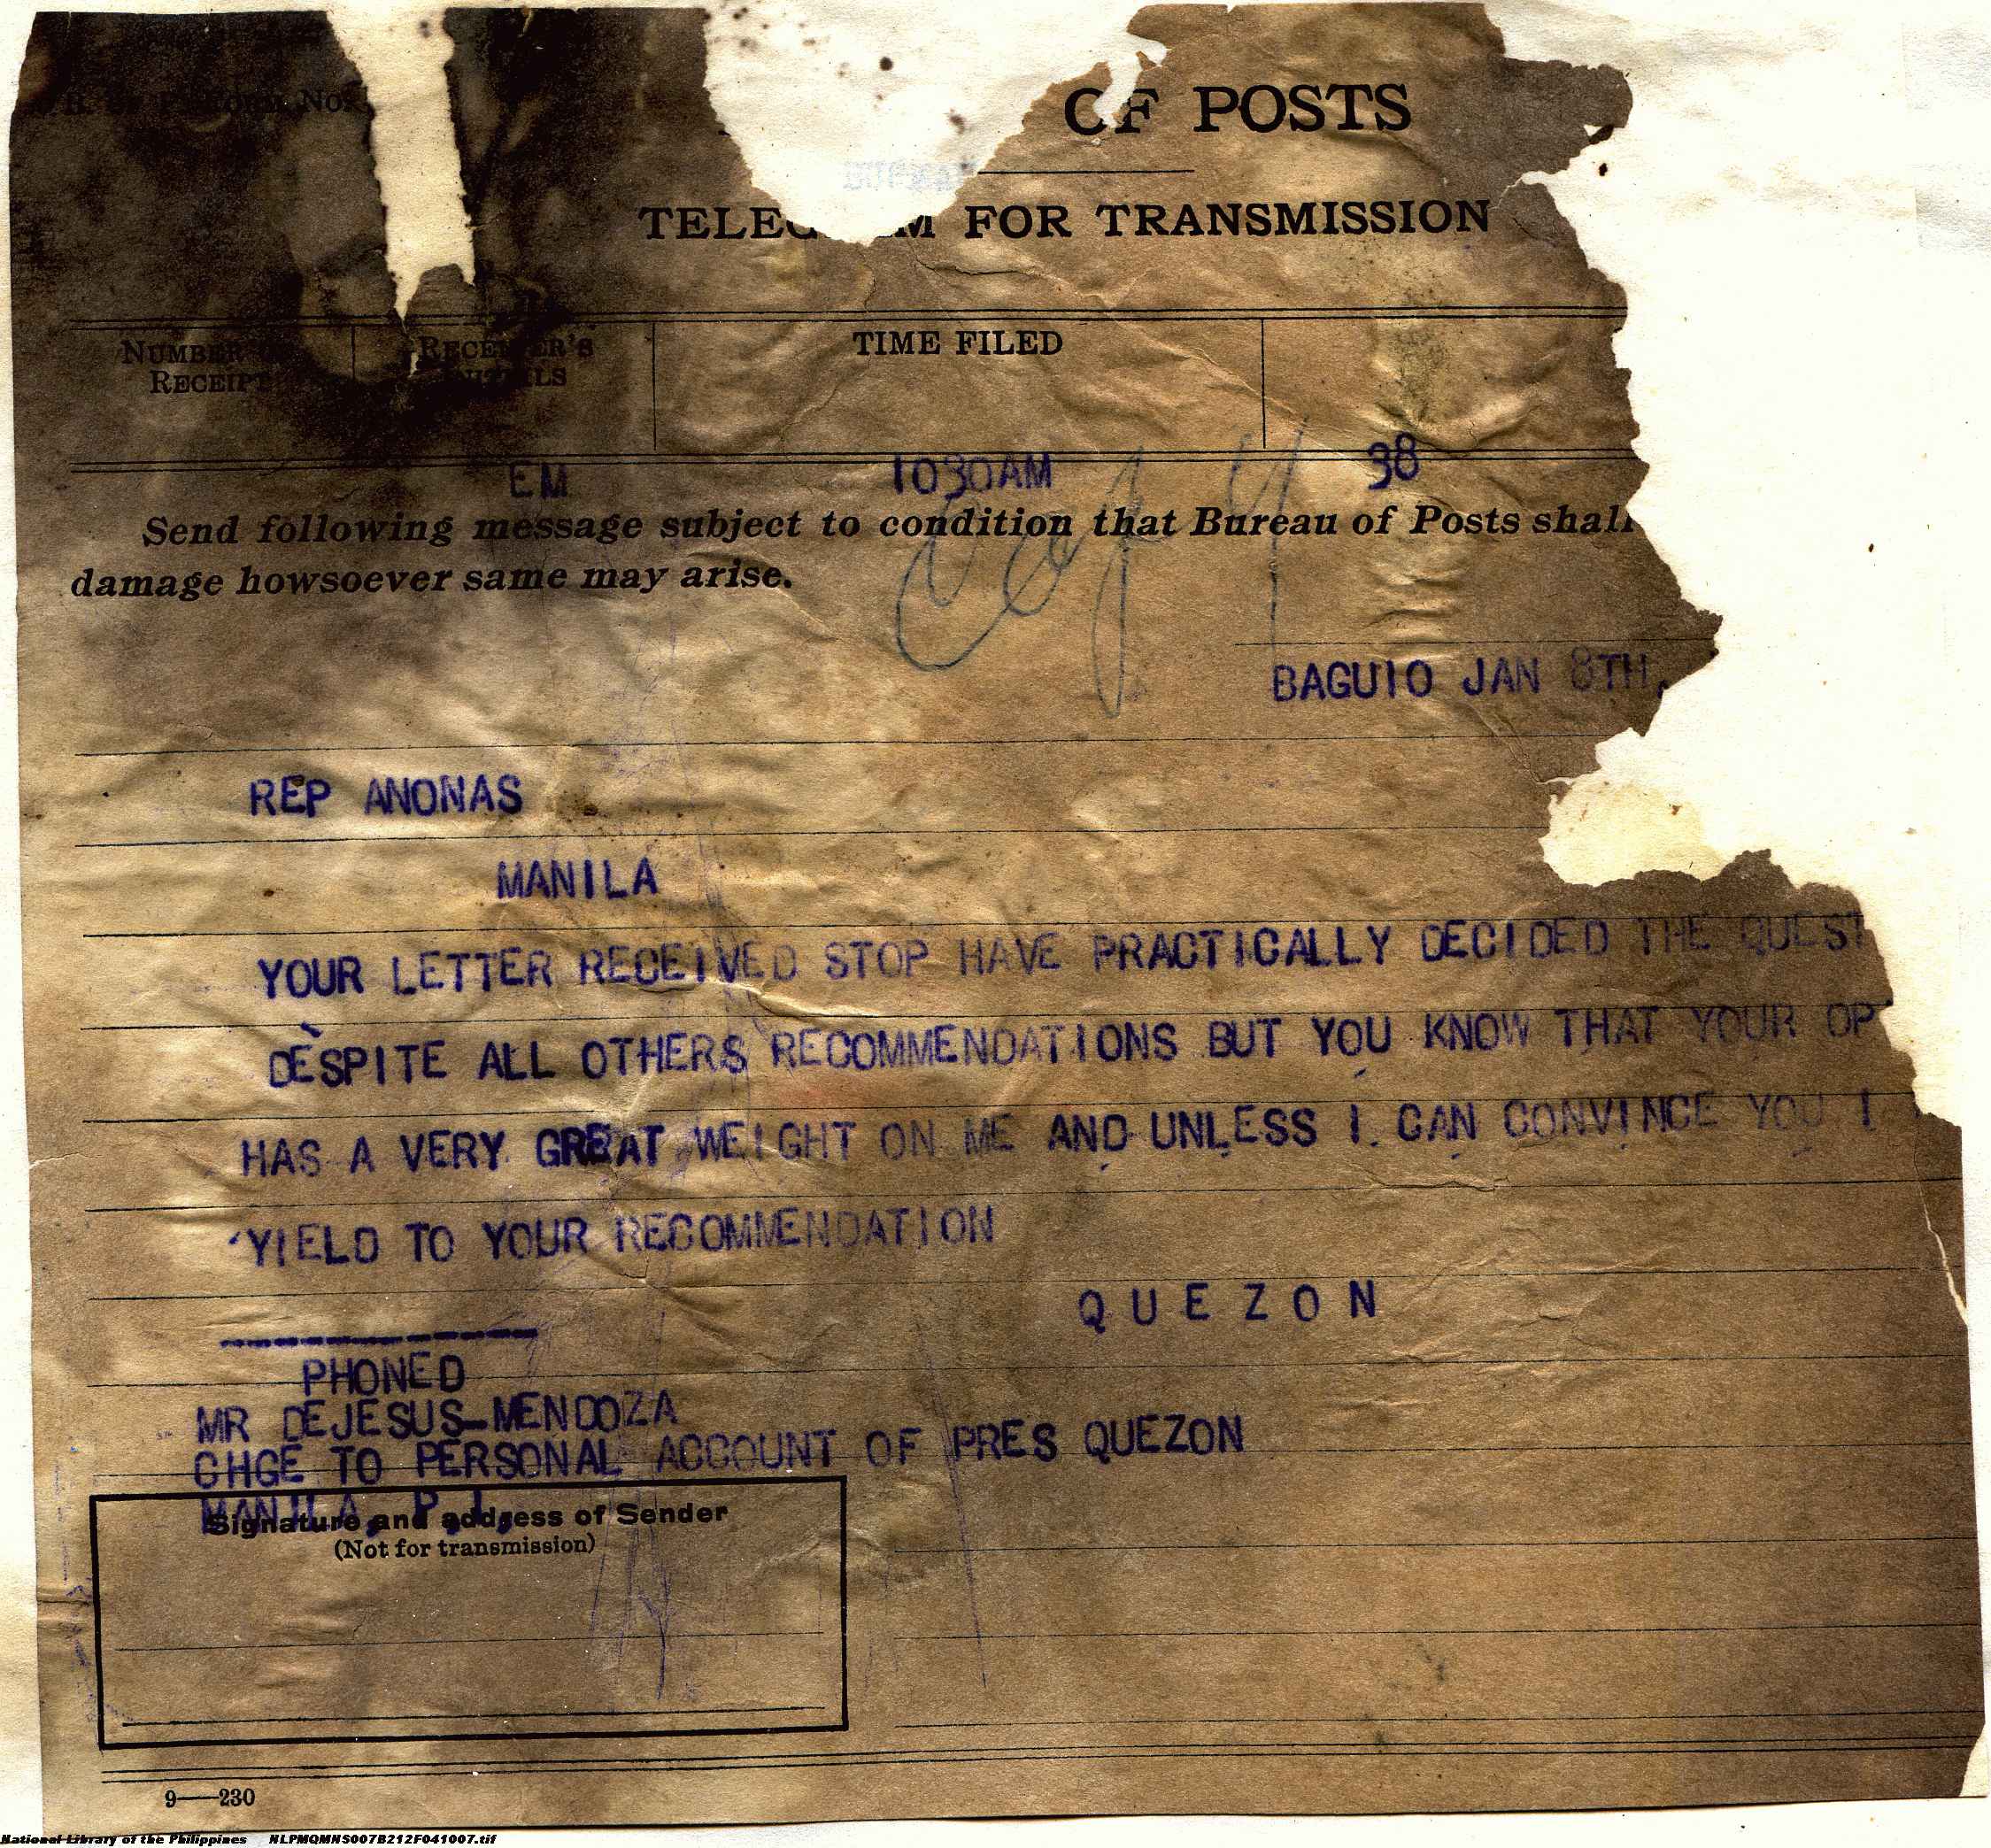 OF POSTS
FOR TRANSMISSION
NUMBER
RECEIPT
RECEIVER'S
INITIALS
TIME FILED
EM 1030AM 38
Send following message subject to condition that Bureau of Posts shall
damage howsoever same may arise.
BAGUIO JAN 8TH,
REP ANONAS
MANILA
YOUR LETTER RECEIVED STOP HAVE PRACTICALLY DECIDED THE QUEST
DESPITE ALL OTHERS RECOMMENDATIONS BUT YOU KNOW THAT YOUR OP
HAS A VERY GREAT WEIGHT ON ME AND UNLESS I CAN CONVINCE YOU I
YIELD TO YOUR RECOMMENDATION
Q U E Z O N
------------
PHONED
MR DEJESUS-MENDOZA
CHGE TO PERSONAL ACCOUNT OF PRES QUEZON
MANILA, P.I.
Signature and address of Sender
(Not for transmission)
9—230
National Library of the Philippines NLPMQMNS007B212F041007.tif